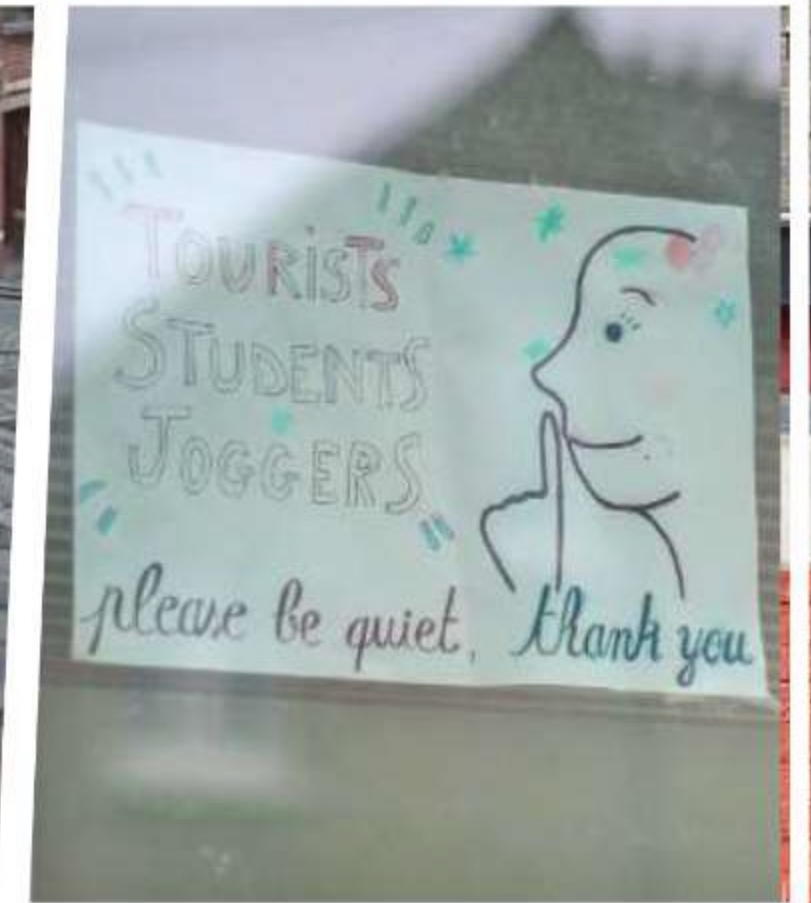 TOURISTS
STUDENTS
JOGGERS
please be quiet, thank you